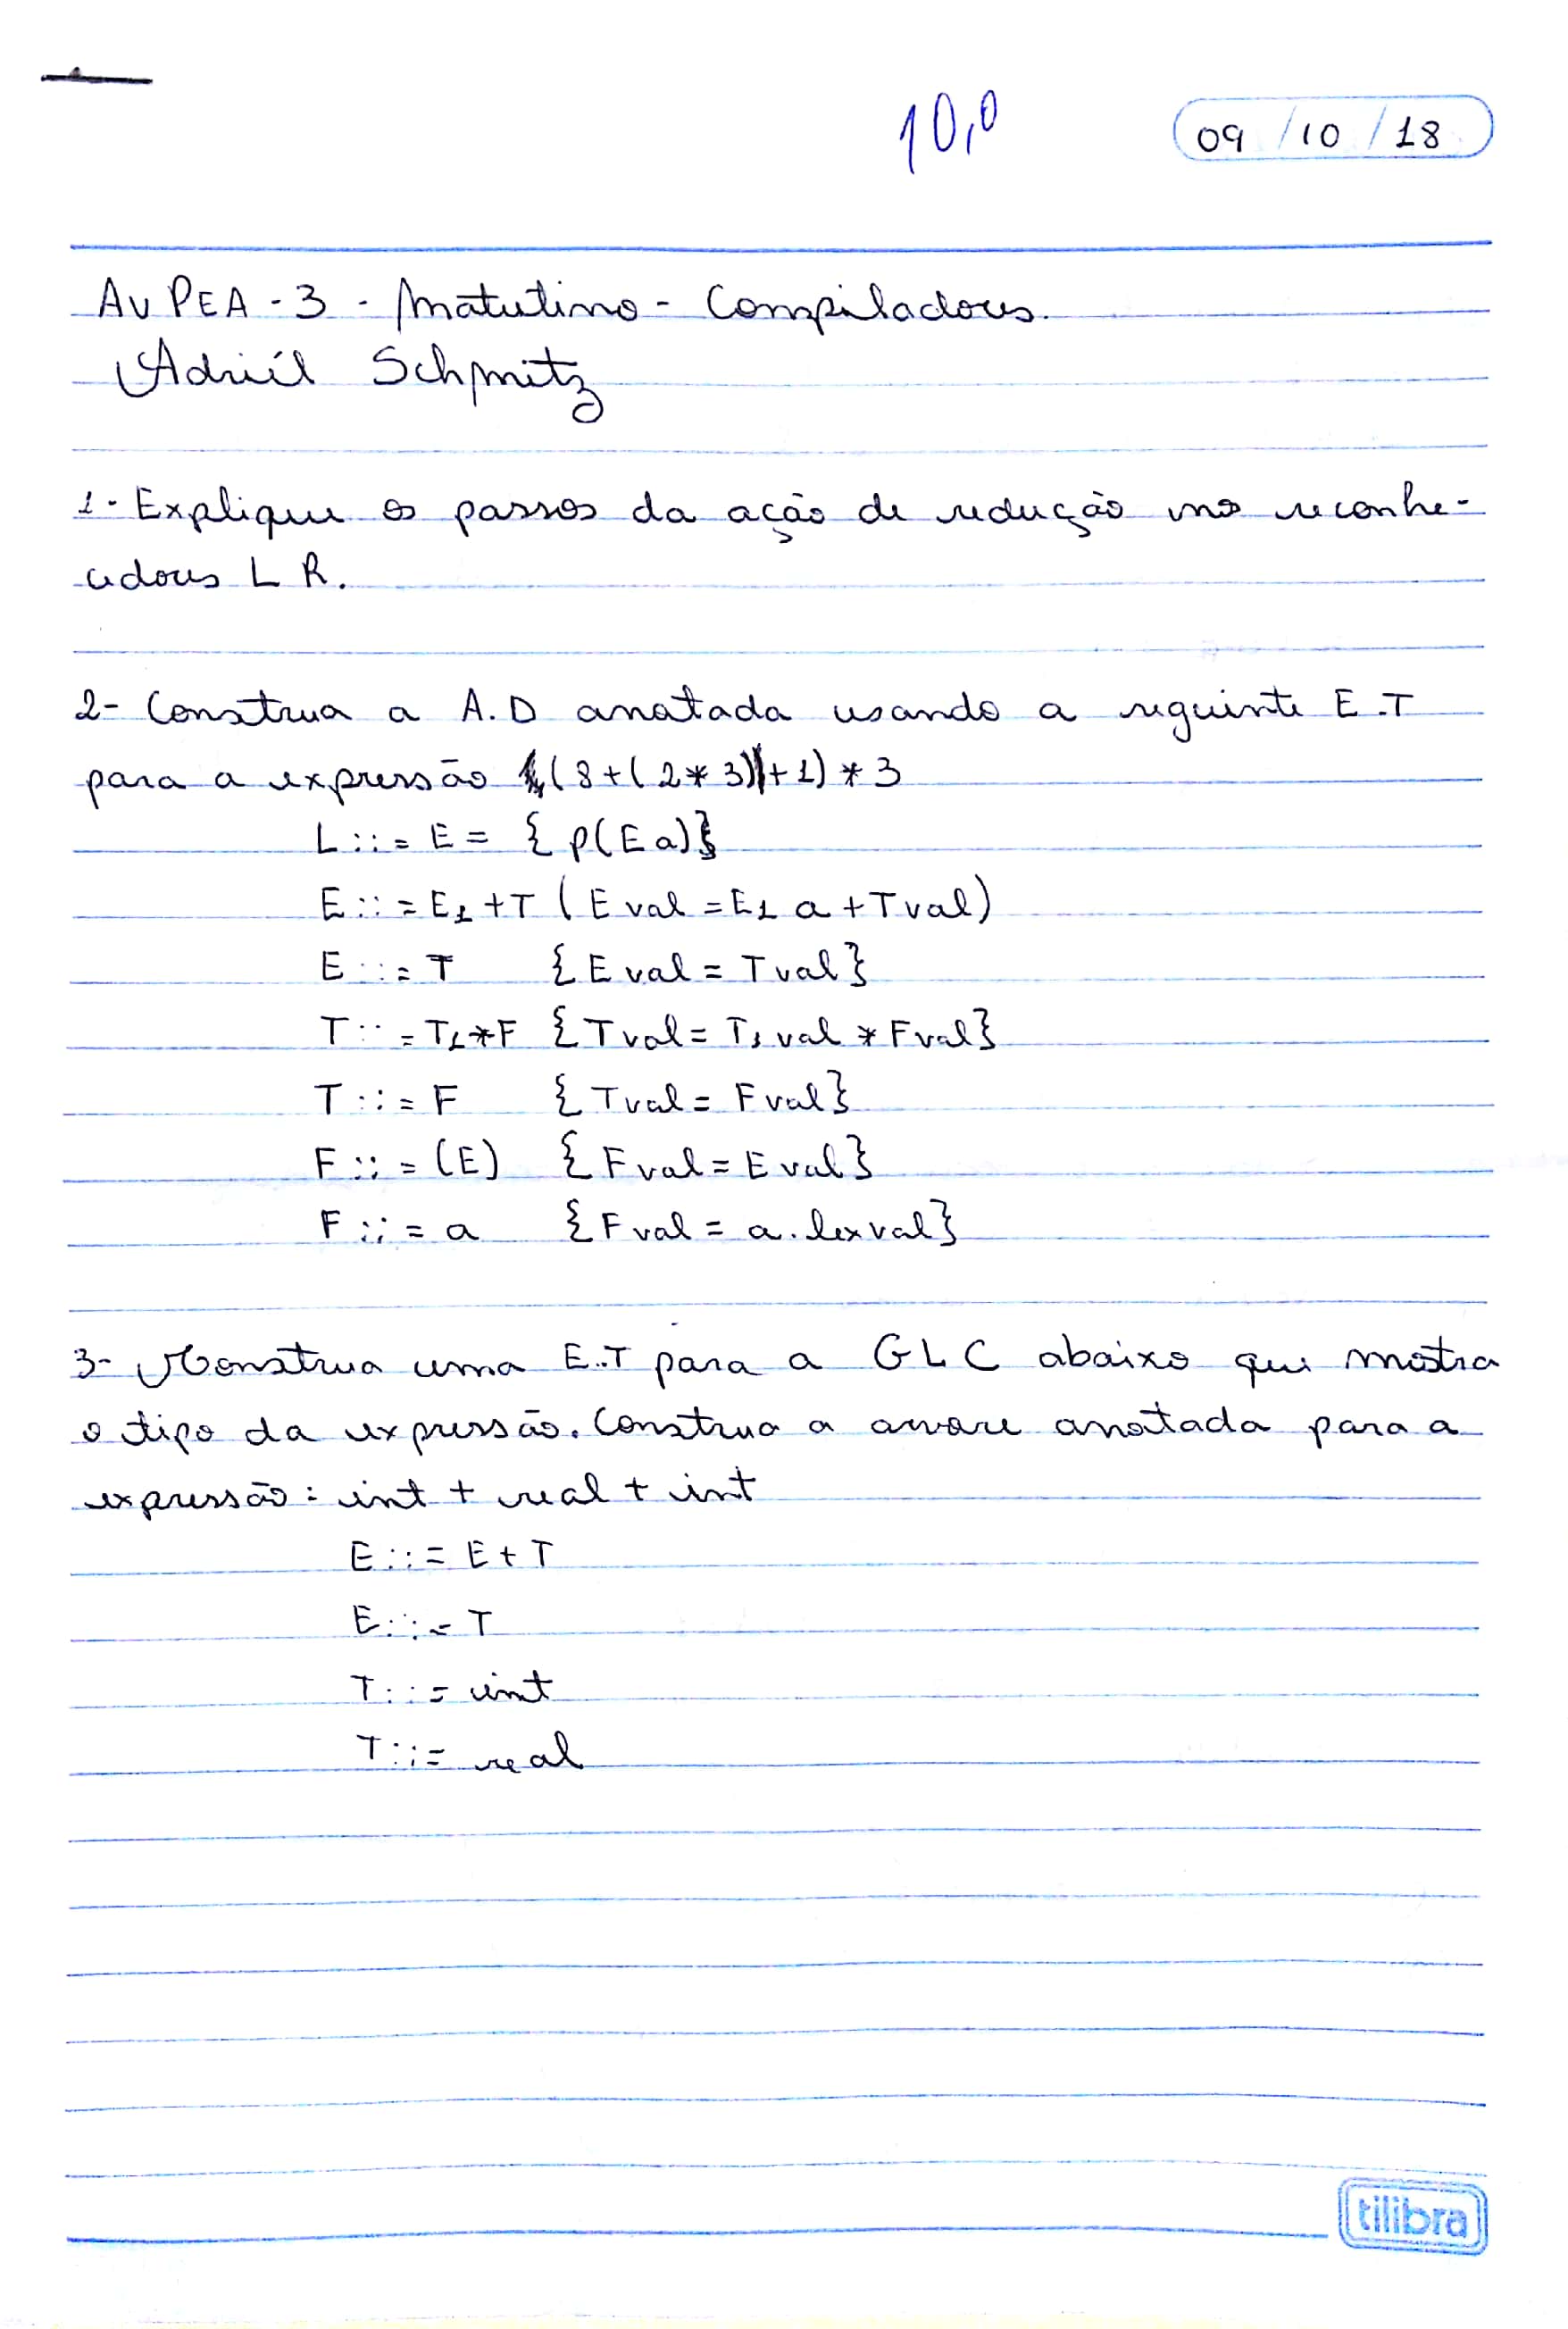 10,0
09/10/18
AV PEA - 3 - Matutino - Compiladores.
Adriél Schmitz
1- Explique os passos da ação de redução nos reconhe-
cedores L R.
2- Construa a A.D anotada usando a seguinte E.T
para a expressão (8+(2*3)+1)*3
L::=E= {p(E a)}
E::=E1+T (E val=E1 a+Tval)
E::=T {E val=Tval}
T::=T1*F {Tval=T1 val*Fval}
T::=F {Tval=Fval}
F::=(E) {Fval=Eval}
F::=a {Fval=a.lexval}
3- Construa uma E.T para a GLC abaixo que mostra
o tipo da expressão. Construa a arvore anotada para a
expressão: int + real + int
E::=E+T
E::=T
T::=int
T::=real
tilibra